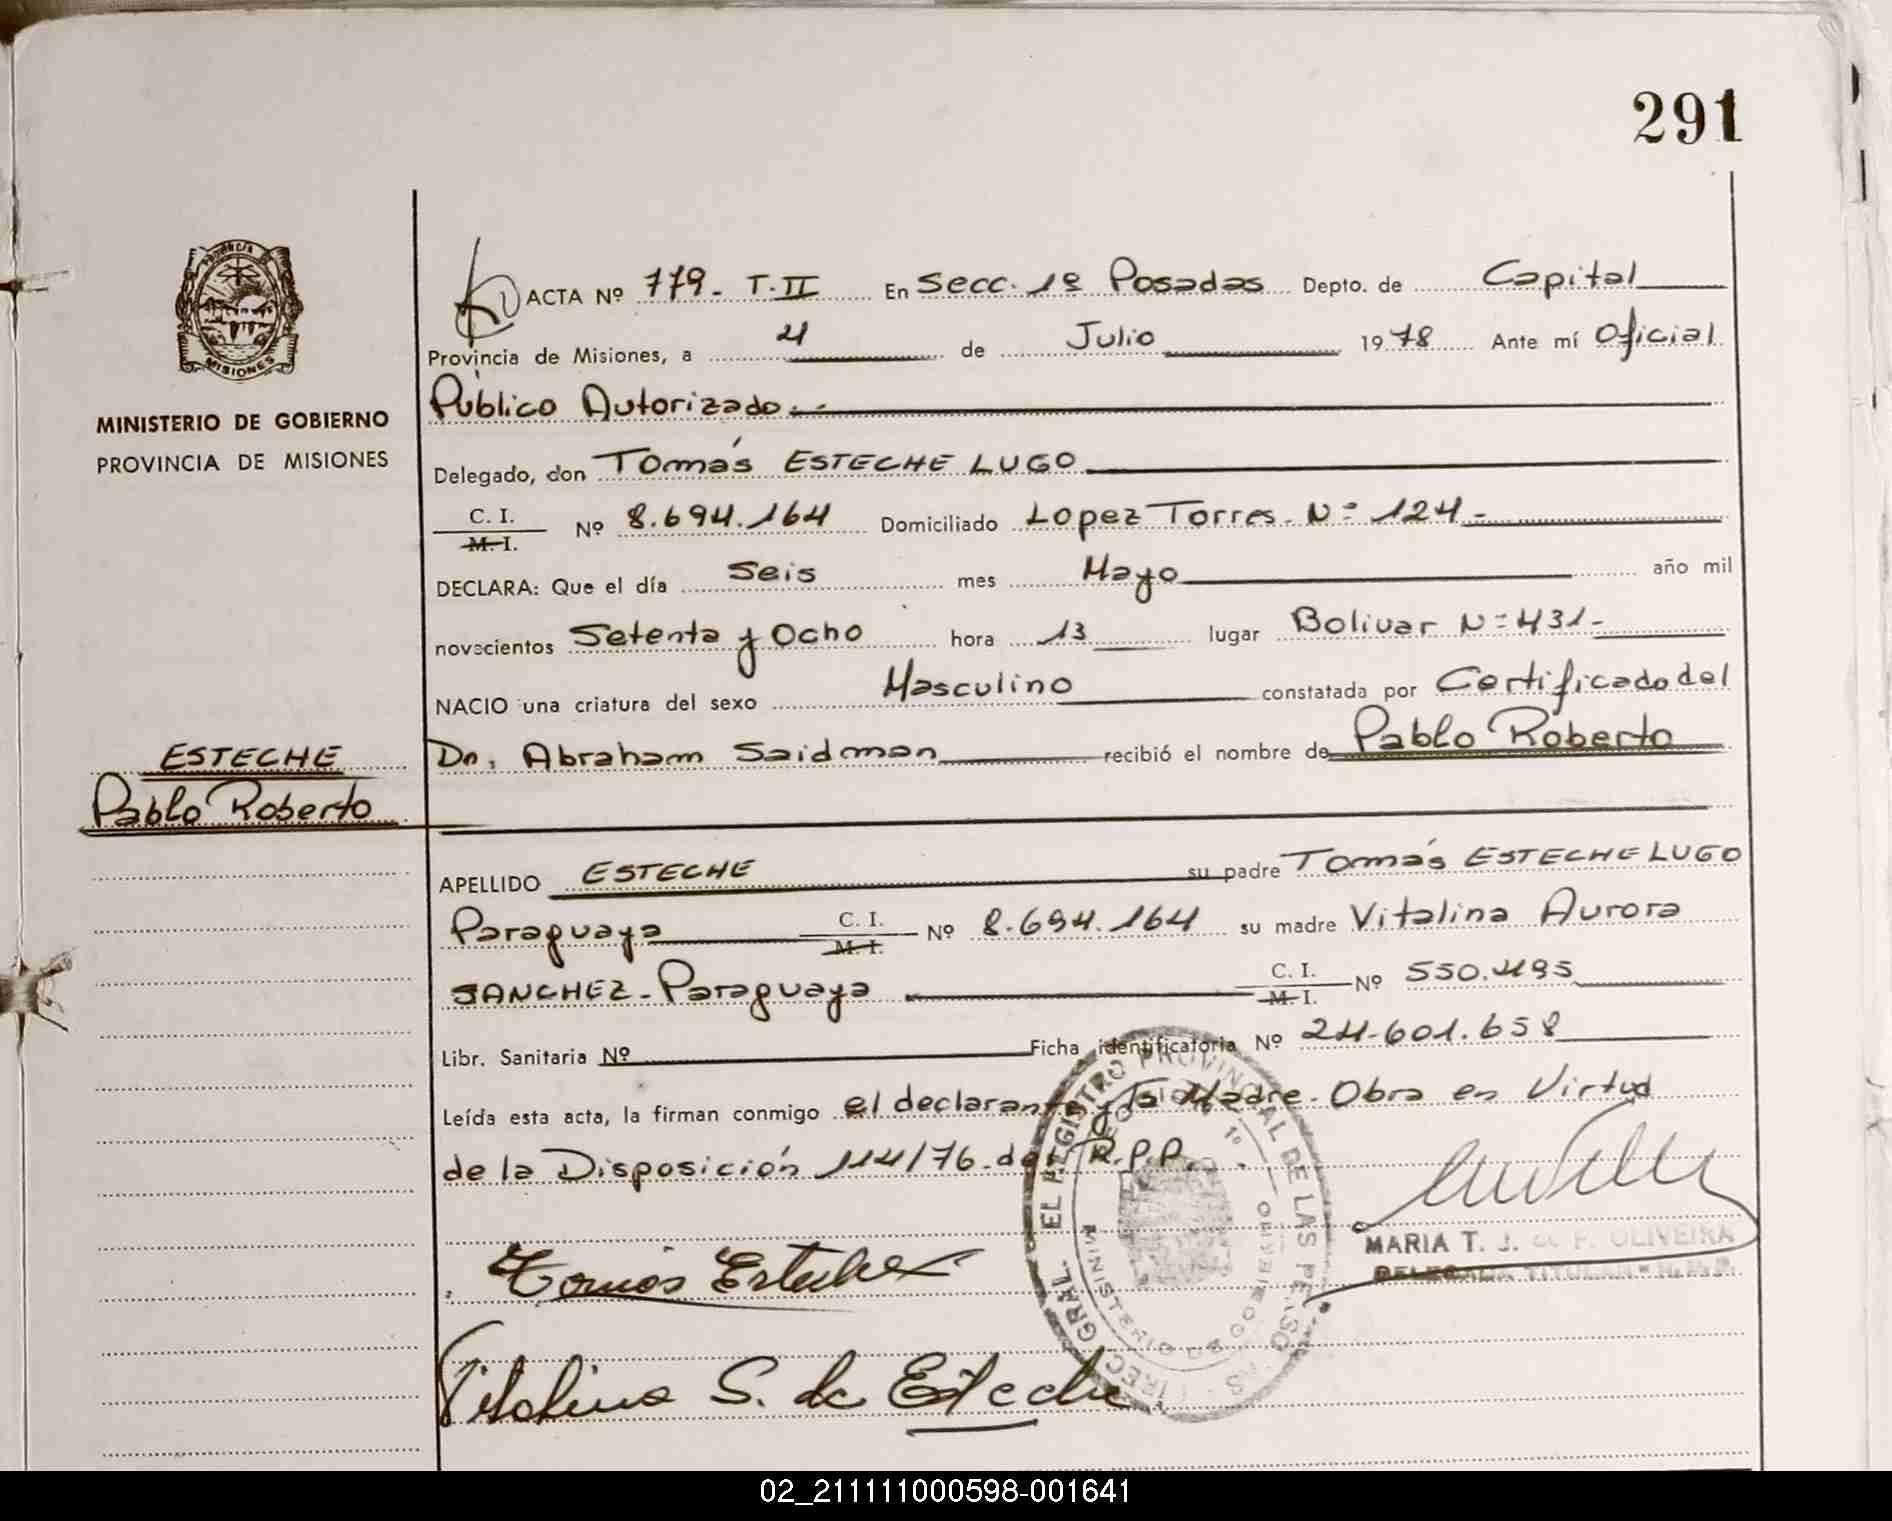 291
PROVINCIA
MISIONES
MINISTERIO DE GOBIERNO
PROVINCIA DE MISIONES
ACTA Nº 779- T.II En Secc. 1º Posadas Depto. de Capital
Provincia de Misiones, a 4 de Julio 1978 Ante mí Oficial
Público Autorizado.-
Delegado, don Tomás ESTECHE LUGO
C. I.
M. I.
Nº 8.694.164 Domiciliado Lopez Torres- N= 124-
DECLARA: Que el día Seis mes Mayo año mil
novecientos Setenta y Ocho hora 13 lugar Bolivar N=431-
NACIO una criatura del sexo Masculino constatada por Certificado del
Dn. Abraham Saidman recibió el nombre de Pablo Roberto
ESTECHE
Pablo Roberto
APELLIDO ESTECHE su padre Tomás ESTECHE LUGO
Paraguaya C. I. M. I. Nº 8.694.164 su madre Vitalina Aurora
SANCHEZ-Paraguaya C. I. M. I. Nº 550.495
Libr. Sanitaria Nº Ficha identificatoria Nº 24-601.658
Leída esta acta, la firman conmigo el declarante y la Madre-Obra en Virtud
de la Disposición 114/76-del R.P.P.
MARIA T. J. de F. OLIVEIRA
DELEGADA TITULAR-
Tomás Esteche
Vitalina S. de Esteche
DIREC. GRAL. EL REGISTRO PROVINCIAL DE LAS PERSONAS
MINISTERIO DE GOBIERNO
02_211111000598-001641